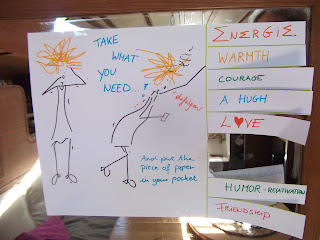 TAKE
WHAT
YOU
NEED...
And put the
piece of paper
in your pocket
ENERGIE
WARMTH
COURAGE
A HUGH
L♥VE
HUMOR - RELATIVATION
FRIENDSHIP